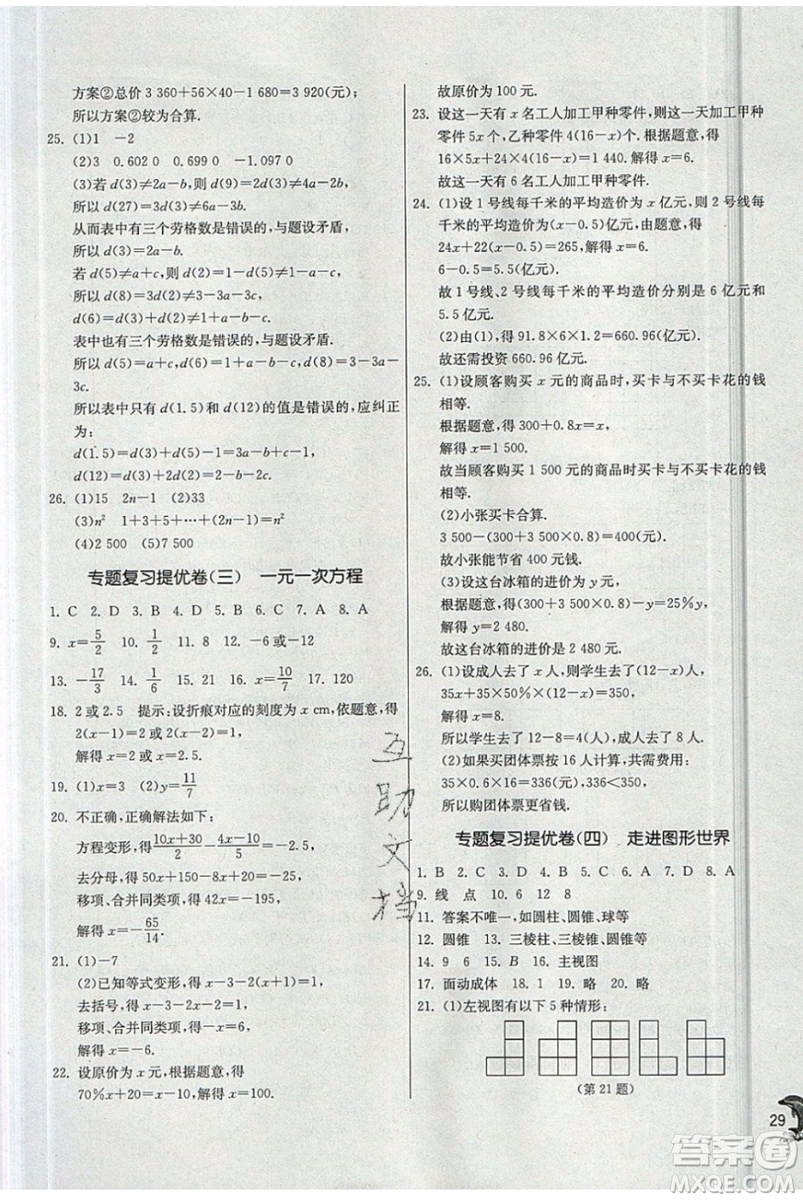 方案②总价 3 360+56×40-1 680=3 920(元);
所以方案②较为合算.
25. (1)1 -2
(2)3 0.602 0 0.699 0 -1.097 0
(3)若 d(3)≠2a-b,则 d(9)=2d(3)≠4a-2b,
所以 d(27)=3d(3)≠6a-3b.
从而表中有三个劳格数是错误的,与题设矛盾,
所以 d(3)=2a-b.
若 d(5)≠a+c,则 d(2)=1-d(5)≠1-a-c,
所以 d(8)=3d(2)≠3-3a-3c,
d(6)=d(3)+d(2)≠1+a-b-c,
表中也有三个劳格数是错误的,与题设矛盾.
所以 d(5)=a+c,d(8)=3d(2)=3-3a-
3c.
所以表中只有 d(1.5)和 d(12)的值是错误的,应纠正
为:
d(1.5)=d(3)+d(5)-1=3a-b+c-1,
d(12)=d(3)+2d(2)=2-b-2c.
26. (1)15 2n-1 (2)33
(3)n² 1+3+5+…+(2n-1)=n²
(4)2 500 (5)7 500
专题复习提优卷(三) 一元一次方程
1. C 2. D 3. B 4. D 5. B 6. C 7. A 8. A
9. x=5/2 10. 1/2 11. 8 12. -6或-12
13. -17/3 14. 1/6 15. 21 16. x=10/7 17. 120
18. 2或2.5 提示:设折痕对应的刻度为 x cm,依题意,得
2(x-1)=2或2(x-2)=1,
解得 x=2或 x=2.5.
19. (1)x=3 (2)y=11/7
20. 不正确,正确解法如下:
方程变形,得(10x+30)/2-(4x-10)/5=-2.5,
去分母,得 50x+150-8x+20=-25,
移项、合并同类项,得 42x=-195,
解得 x=-65/14.
21. (1)-7
(2)已知等式变形,得 x-2(x+1)=4,
去括号,得 x-2x-2=4,
移项、合并同类项,得-x=6,
解得 x=-6.
22. 设原价为 x 元,根据题意,得
70%x+20=x-10,解得 x=100.
故原价为 100 元.
23. 设这一天有 x 名工人加工甲种零件,则这一天加工甲种
零件 5x 个,乙种零件 4(16-x)个.根据题意,得
16×5x+24×4(16-x)=1 440.解得 x=6.
故这一天有 6 名工人加工甲种零件.
24. (1)设 1 号线每千米的平均造价为 x 亿元,则 2 号线每
千米的平均造价为(x-0.5)亿元,由题意,得
24x+22(x-0.5)=265,解得 x=6.
6-0.5=5.5.
故 1 号线、2 号线每千米的平均造价分别是 6 亿元和
5.5 亿元.
(2)由(1)得 91.8×6×1.2=660.96(亿元).
故还需投资 660.96 亿元.
25. (1)设顾客购买 x 元的商品时,买卡与不买卡花的钱
相等.
根据题意,得 300+0.8x=x.
解得 x=1 500.
故当顾客购买 1 500 元的商品时买卡与不买卡花的钱
相等.
(2)小张买卡合算.
3 500-(300+3 500×0.8)=400(元).
故小张能节省 400 元钱.
(3)设这台冰箱的进价为 y 元,
根据题意,得(300+3 500×0.8)-y=25%y,
解得 y=2 480.
故这台冰箱的进价是 2 480 元.
26. (1)设成人去了 x 人,则学生去了(12-x)人,
35x+35×50%×(12-x)=350,
解得 x=8.
所以学生去了 12-x=4(人),成人去了 8 人.
(2)如果买团体票按 16 人计算,共需费用:
35×0.6×16=336(元),336<350,
所以购团体票更省钱.
专题复习提优卷(四) 走进图形世界
1. B 2. C 3. C 4. D 5. A 6. B 7. D 8. A
9. 线 点 10. 6 12 8
11. 答案不唯一,如圆柱、圆锥、球等
12. 圆锥 13. 三棱柱、三棱锥、圆锥
14. 9 6 15. B 16. 主视图
17. 面动成体 18. 略 19. 略 20. 略
21. (1)左视图有以下 5 种情形:
(第 21 题)
29
互助文档
答案圈
MXQE.COM